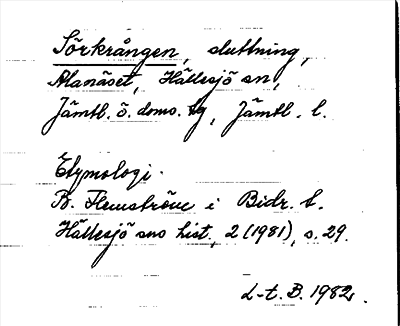 Sörkrången, sluttning,
Alanäset, Hällesjö sn,
Jämtl. ö. doms. tg, Jämtl. l.
Etymologi.
B. Flemström i Bidr. t.
Hällesjö sns hist. 2 (1981), s. 29.
L-t. B. 1982.